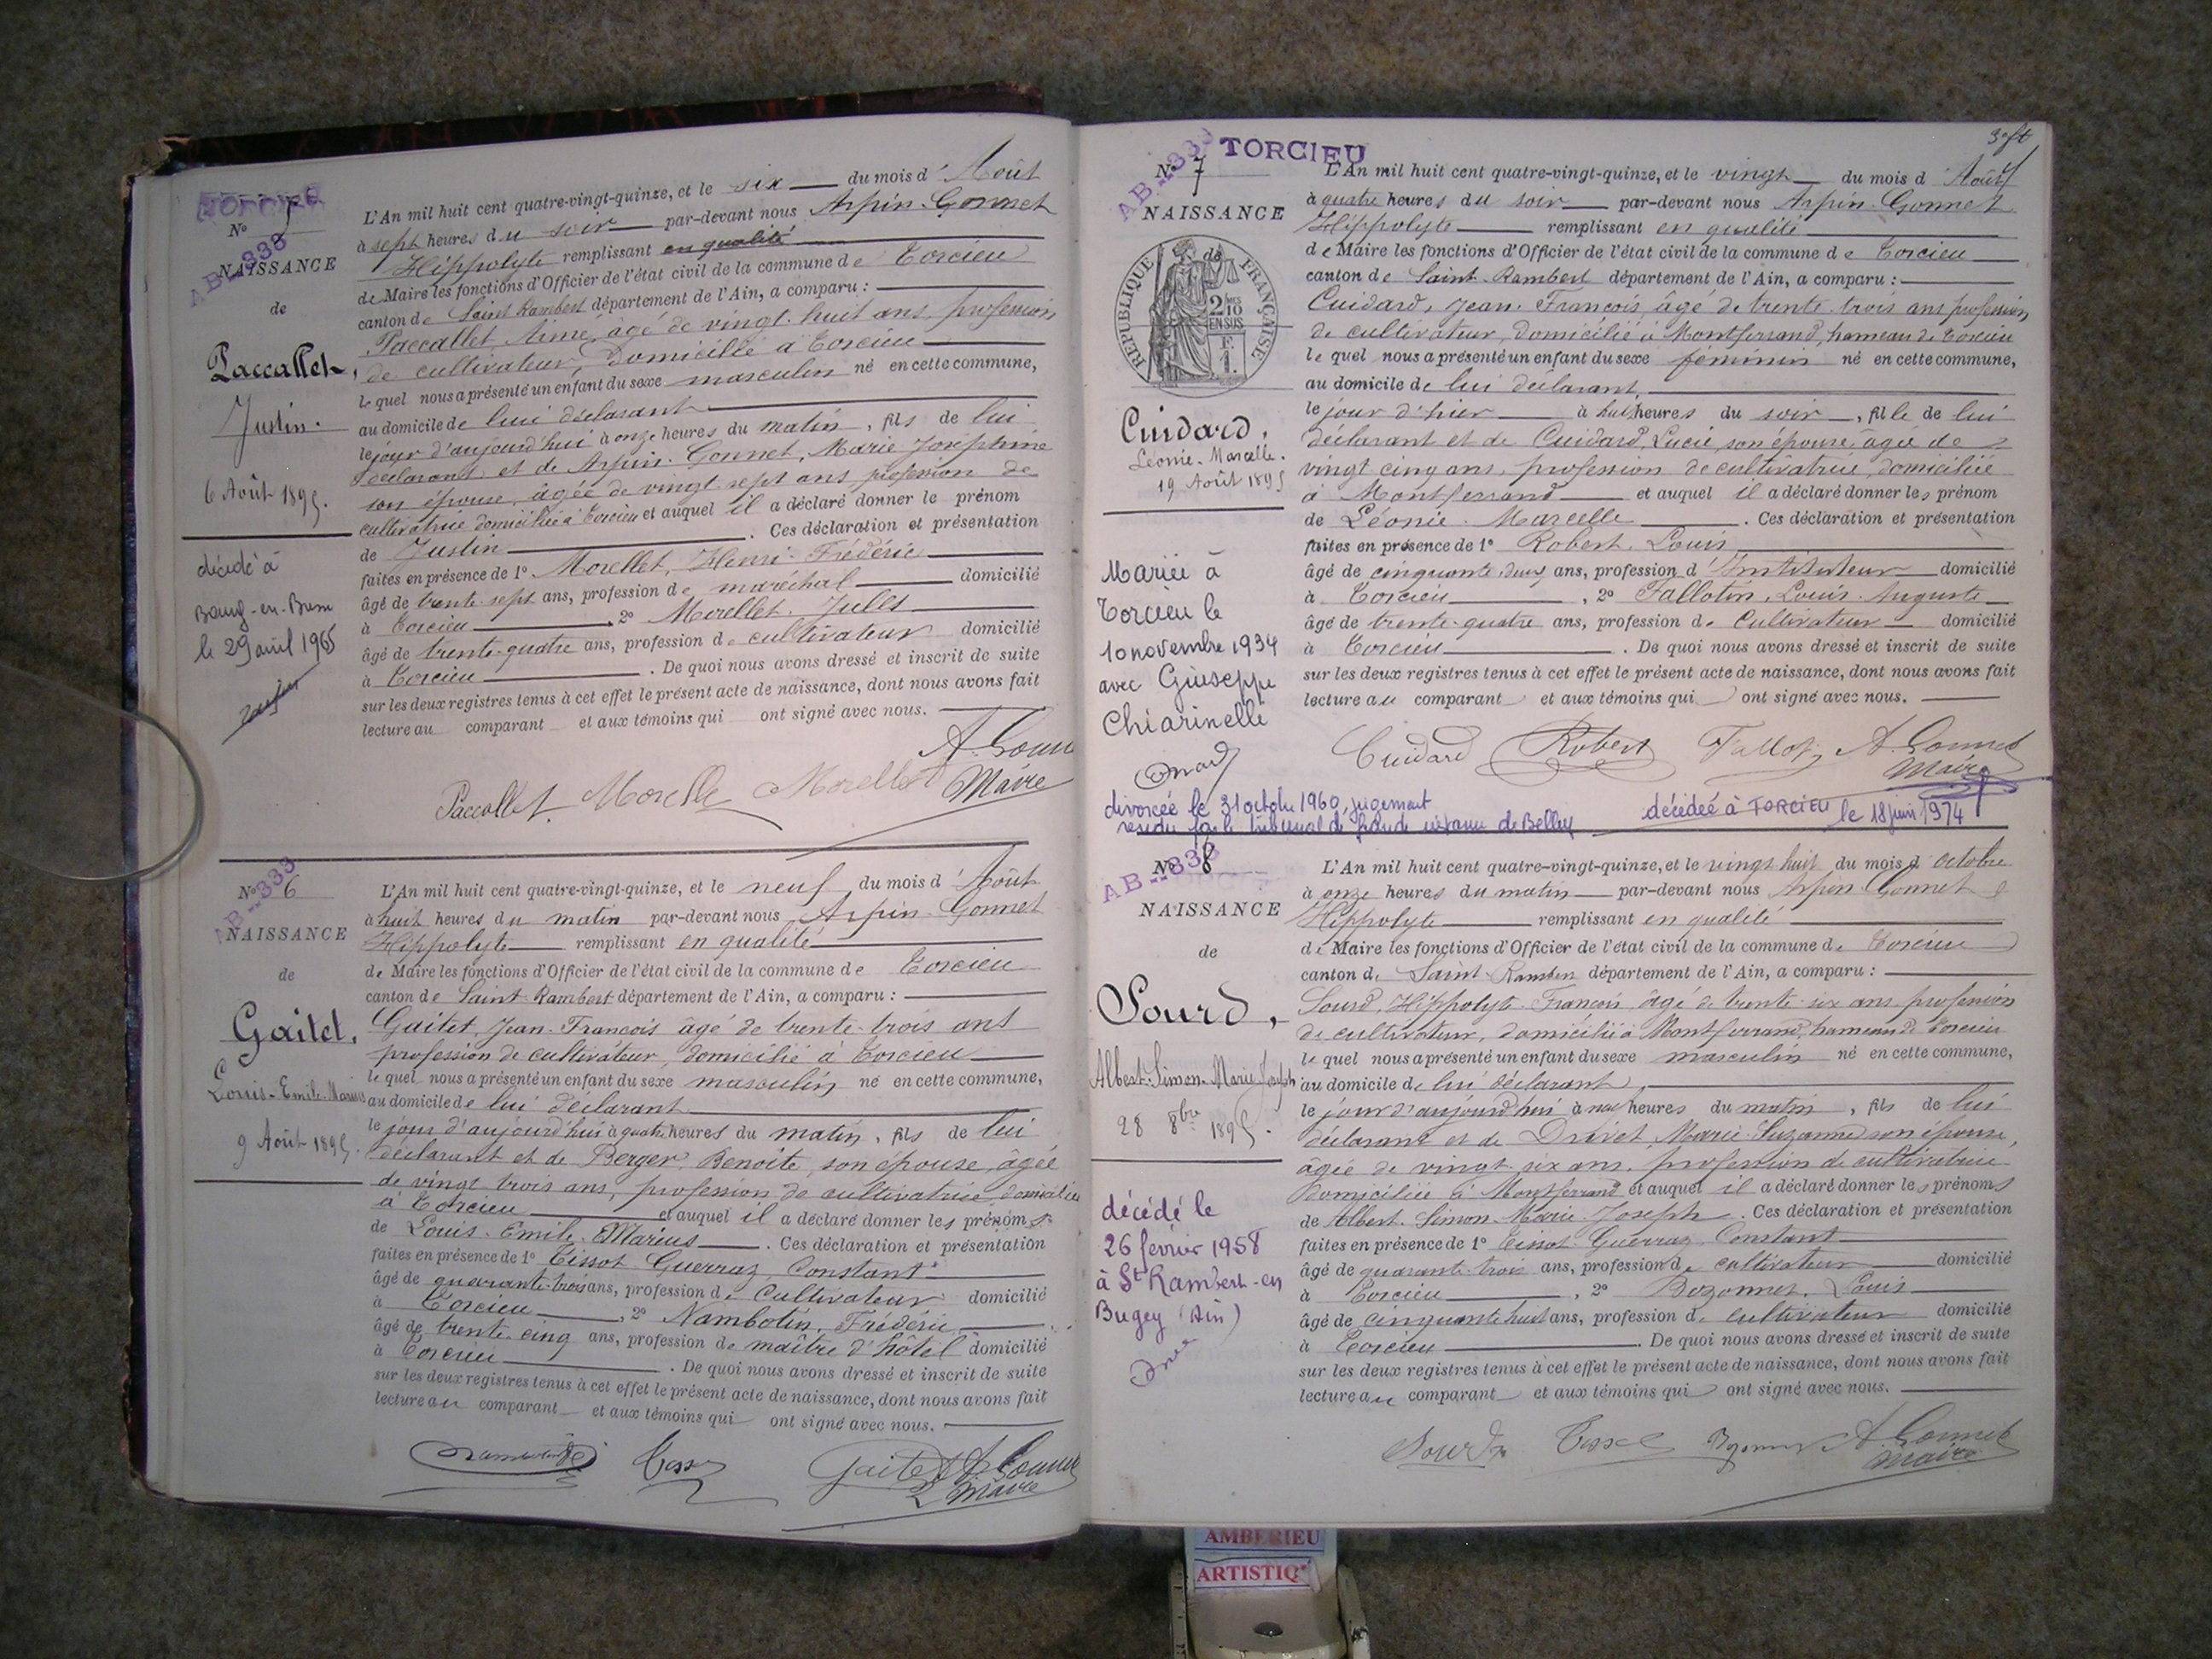 TORCIEU
N° 5
AB-338
NAISSANCE
de
Paccallet,
Justin.
6 Août 1895.
décédé à
Bourg-en-Bresse
le 29 avril 1965
L'An mil huit cent quatre-vingt-quinze, et le six du mois d'Août
à sept heures du soir par-devant nous Arpin-Gonnet
Hippolyte remplissant en qualité
de Maire les fonctions d'Officier de l'état civil de la commune de Torcieu
canton de Saint Rambert département de l'Ain, a comparu :
Paccallet Aimé, âgé de vingt-huit ans, profession
de cultivateur, domicilié à Torcieu
le quel nous a présenté un enfant du sexe masculin né en cette commune,
au domicile de lui déclarant
le jour d'aujourd'hui à onze heures du matin, fils de lui
déclarant et de Arpin-Gonnet, Marie Joséphine
son épouse, âgée de vingt sept ans, profession de
cultivatrice domiciliée à Torcieu et auquel il a déclaré donner le prénom
de Justin. Ces déclaration et présentation
faites en présence de 1° Morellet, Henri-Frédéric
âgé de trente-sept ans, profession de maréchal domicilié
à Torcieu, 2° Morellet, Jules
âgé de trente-quatre ans, profession de cultivateur domicilié
à Torcieu. De quoi nous avons dressé et inscrit de suite
sur les deux registres tenus à cet effet le présent acte de naissance, dont nous avons fait
lecture au comparant et aux témoins qui ont signé avec nous.
Paccallet Morelle Morellet A. Gonnet
Maire
N° 6
AB-333
NAISSANCE
de
Gaitet,
Louis-Emile-Marius
9 Août 1895.
L'An mil huit cent quatre-vingt-quinze, et le neuf du mois d'Août
à huit heures du matin par-devant nous Arpin-Gonnet
Hippolyte remplissant en qualité
de Maire les fonctions d'Officier de l'état civil de la commune de Torcieu
canton de Saint-Rambert département de l'Ain, a comparu :
Gaitet, Jean-François âgé de trente-trois ans
profession de cultivateur, domicilié à Torcieu
le quel nous a présenté un enfant du sexe masculin né en cette commune,
au domicile de lui déclarant
le jour d'aujourd'hui à quatre heures du matin, fils de lui
déclarant et de Berger, Benoite, son épouse, âgée
de vingt trois ans, profession de cultivatrice, domiciliée
à Torcieu et auquel il a déclaré donner les prénoms
de Louis-Emile-Marius. Ces déclaration et présentation
faites en présence de 1° Tissot-Guerraz, Constant
âgé de quarante-trois ans, profession de Cultivateur domicilié
à Torcieu, 2° Nambotin, Frédéric
âgé de trente-cinq ans, profession de maître d'hôtel domicilié
à Torcieu. De quoi nous avons dressé et inscrit de suite
sur les deux registres tenus à cet effet le présent acte de naissance, dont nous avons fait
lecture au comparant et aux témoins qui ont signé avec nous.
Gaitet A. Gonnet
Maire
TORCIEU
N° 7
NAISSANCE
de
RÉPUBLIQUE FRANÇAISE
2/10 EN SUS
F. 1.
Cuidard,
Léonie-Marcelle.
19 Août 1895
Mariée à
Torcieu le
10 novembre 1934
avec Giuseppe
Chiarinelle
L'An mil huit cent quatre-vingt-quinze, et le vingt du mois d'Août
à quatre heures du soir par-devant nous Arpin-Gonnet
Hippolyte remplissant en qualité
de Maire les fonctions d'Officier de l'état civil de la commune de Torcieu
canton de Saint-Rambert département de l'Ain, a comparu :
Cuidard, Jean-François, âgé de trente-trois ans, profession
de cultivateur, domicilié à Montferrand, hameau de Torcieu
le quel nous a présenté un enfant du sexe féminin né en cette commune,
au domicile de lui déclarant,
le jour d'hier à huit heures du soir, fille de lui
déclarant et de Cuidard, Lucie, son épouse, âgée de
vingt cinq ans, profession de cultivatrice, domiciliée
à Montferrand et auquel il a déclaré donner les prénom
de Léonie-Marcelle. Ces déclaration et présentation
faites en présence de 1° Robert, Louis
âgé de cinquante-deux ans, profession d'Instituteur domicilié
à Torcieu, 2° Fallotin, Louis-Auguste
âgé de trente-quatre ans, profession de Cultivateur domicilié
à Torcieu. De quoi nous avons dressé et inscrit de suite
sur les deux registres tenus à cet effet le présent acte de naissance, dont nous avons fait
lecture au comparant et aux témoins qui ont signé avec nous.
Cuidard Robert A. Gonnet
Maire
divorcée le 31 octobre 1960, jugement
rendu par le tribunal de grande instance de Belley
décédée à TORCIEU le 18 juin 1974
N° 8
NAISSANCE
de
Sourd,
Albert-Simon-Marie-Joseph
28 8bre 1895.
décédé le
26 février 1958
à St Rambert-en
Bugey (Ain)
L'An mil huit cent quatre-vingt-quinze, et le vingt huit du mois d'octobre
à onze heures du matin par-devant nous Arpin-Gonnet
Hippolyte remplissant en qualité
de Maire les fonctions d'Officier de l'état civil de la commune de Torcieu
canton de Saint-Rambert département de l'Ain, a comparu :
Sourd, Hippolyte-François, âgé de trente-six ans, profession
de cultivateur, domicilié à Montferrand, hameau de Torcieu
le quel nous a présenté un enfant du sexe masculin né en cette commune,
au domicile de lui déclarant,
le jour d'aujourd'hui à neuf heures du matin, fils de lui
déclarant et de Drivet, Marie-Suzanne son épouse,
âgée de vingt-six ans, profession de cultivatrice
domiciliée à Montferrand et auquel il a déclaré donner les prénoms
de Albert-Simon-Marie-Joseph. Ces déclaration et présentation
faites en présence de 1° Tissot-Guerraz, Constant
âgé de quarante-trois ans, profession de cultivateur domicilié
à Torcieu, 2° Bozonnet, Louis
âgé de cinquante huit ans, profession de cultivateur domicilié
à Torcieu. De quoi nous avons dressé et inscrit de suite
sur les deux registres tenus à cet effet le présent acte de naissance, dont nous avons fait
lecture au comparant et aux témoins qui ont signé avec nous.
Sourd A. Gonnet
Maire
AMBERIEU
ARTISTIQ